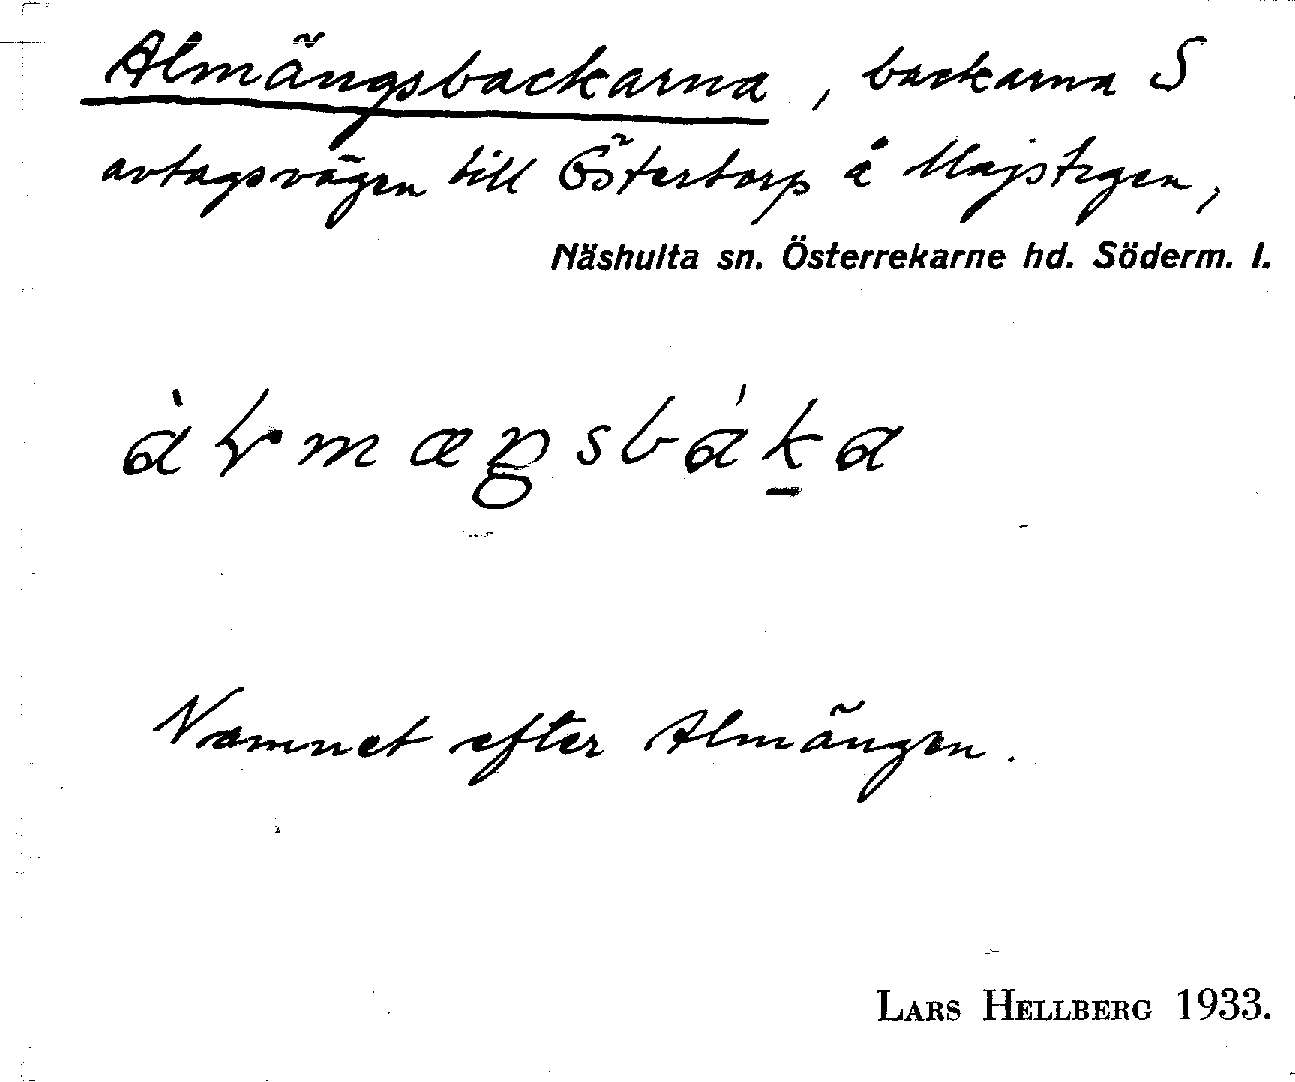 Almängsbackarna, backarna S
avtagsvägen till Östertorp å Majstigen,
Näshulta sn. Österrekarne hd. Söderm. l.
Namnet efter Almängen.
LARS HELLBERG 1933.